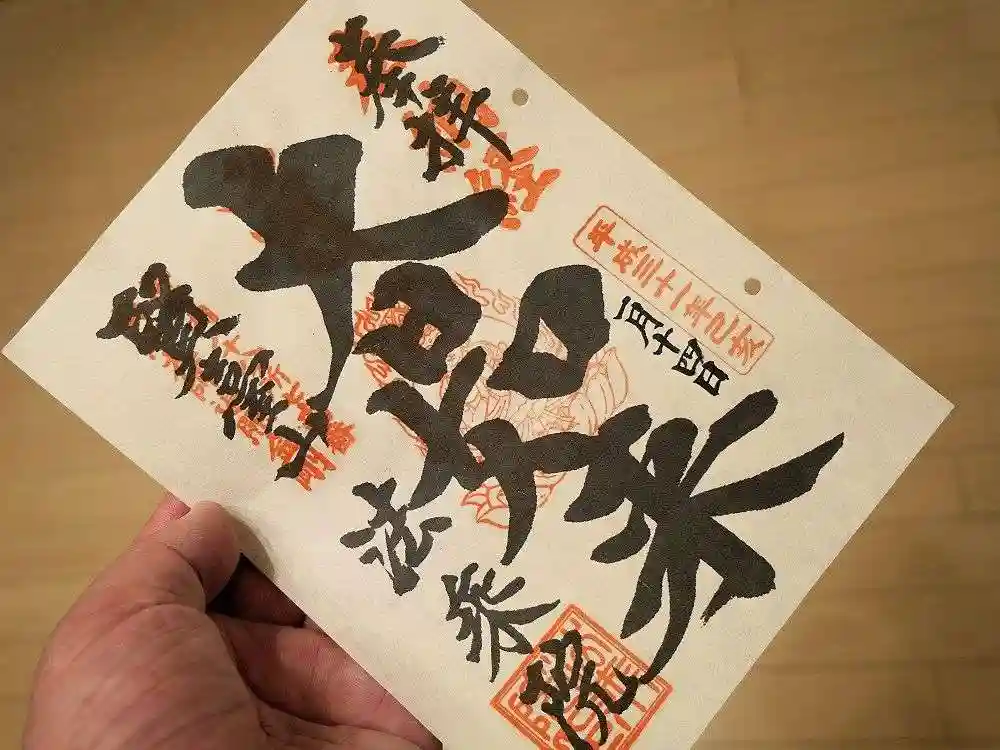 奉拝
平成三十一年己亥
一月十四日
大日如来
賢臺山
法乗院